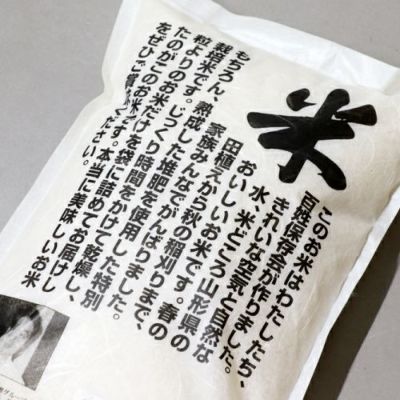 米
このお米はわたしたち、
百姓保存会が作りました。
きれいな空気と自然な
水、米どころ山形県の
おいしいお米です。春の
田植えから秋の稲刈りまで、
家族みんなでがんばりました。
もちろん、熟成した堆肥を使用した特別
栽培米です。じっくり時間をかけて乾燥し、
粒よりのお米だけを袋に詰めてお届けし
たのがこのお米です。本当に美味しいお米
をぜひご賞味ください。